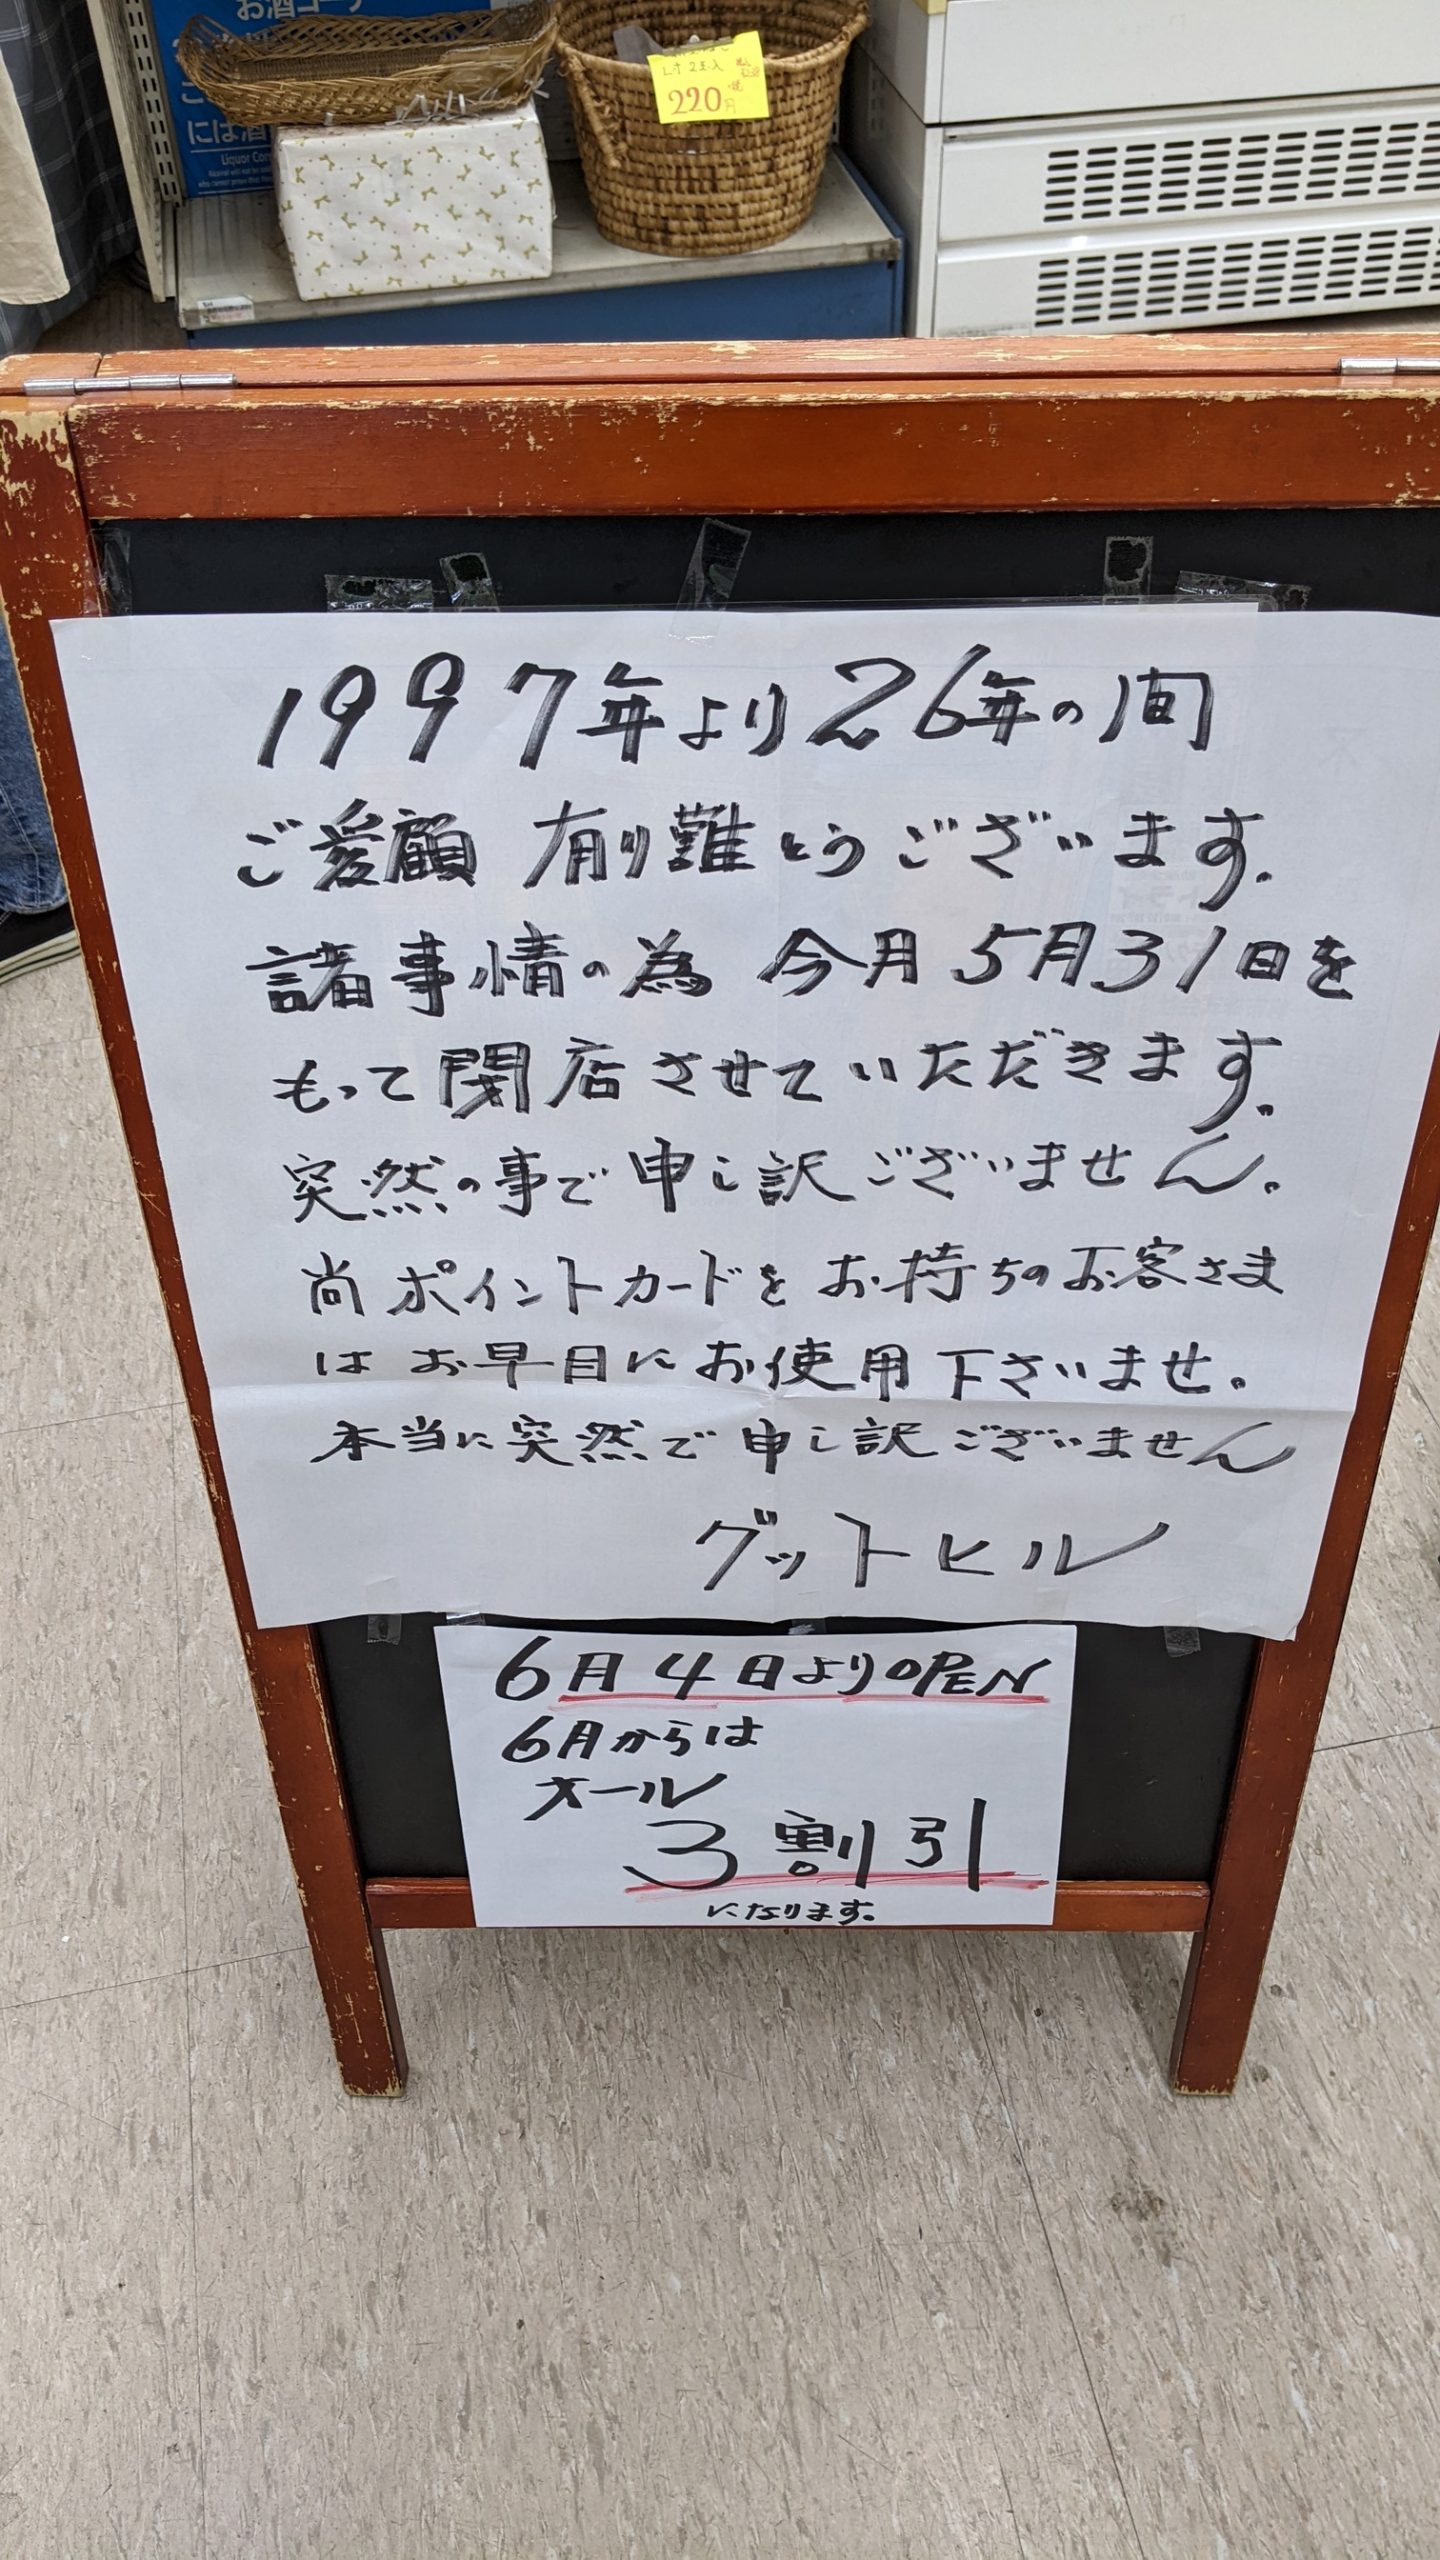 お酒コーナー
には酒
Liquor Cor
220円
1997年より26年の間
ご愛顧 有り難とうございます。
諸事情の為 今月5月31日を
もって閉店させていただきます。
突然の事で申し訳ございません。
尚ポイントカードをお持ちのお客さま
はお早目にお使用下さいませ。
本当に突然で申し訳ございません
グットヒル
6月4日よりOPEN
6月からは
オール
3割引
になります。